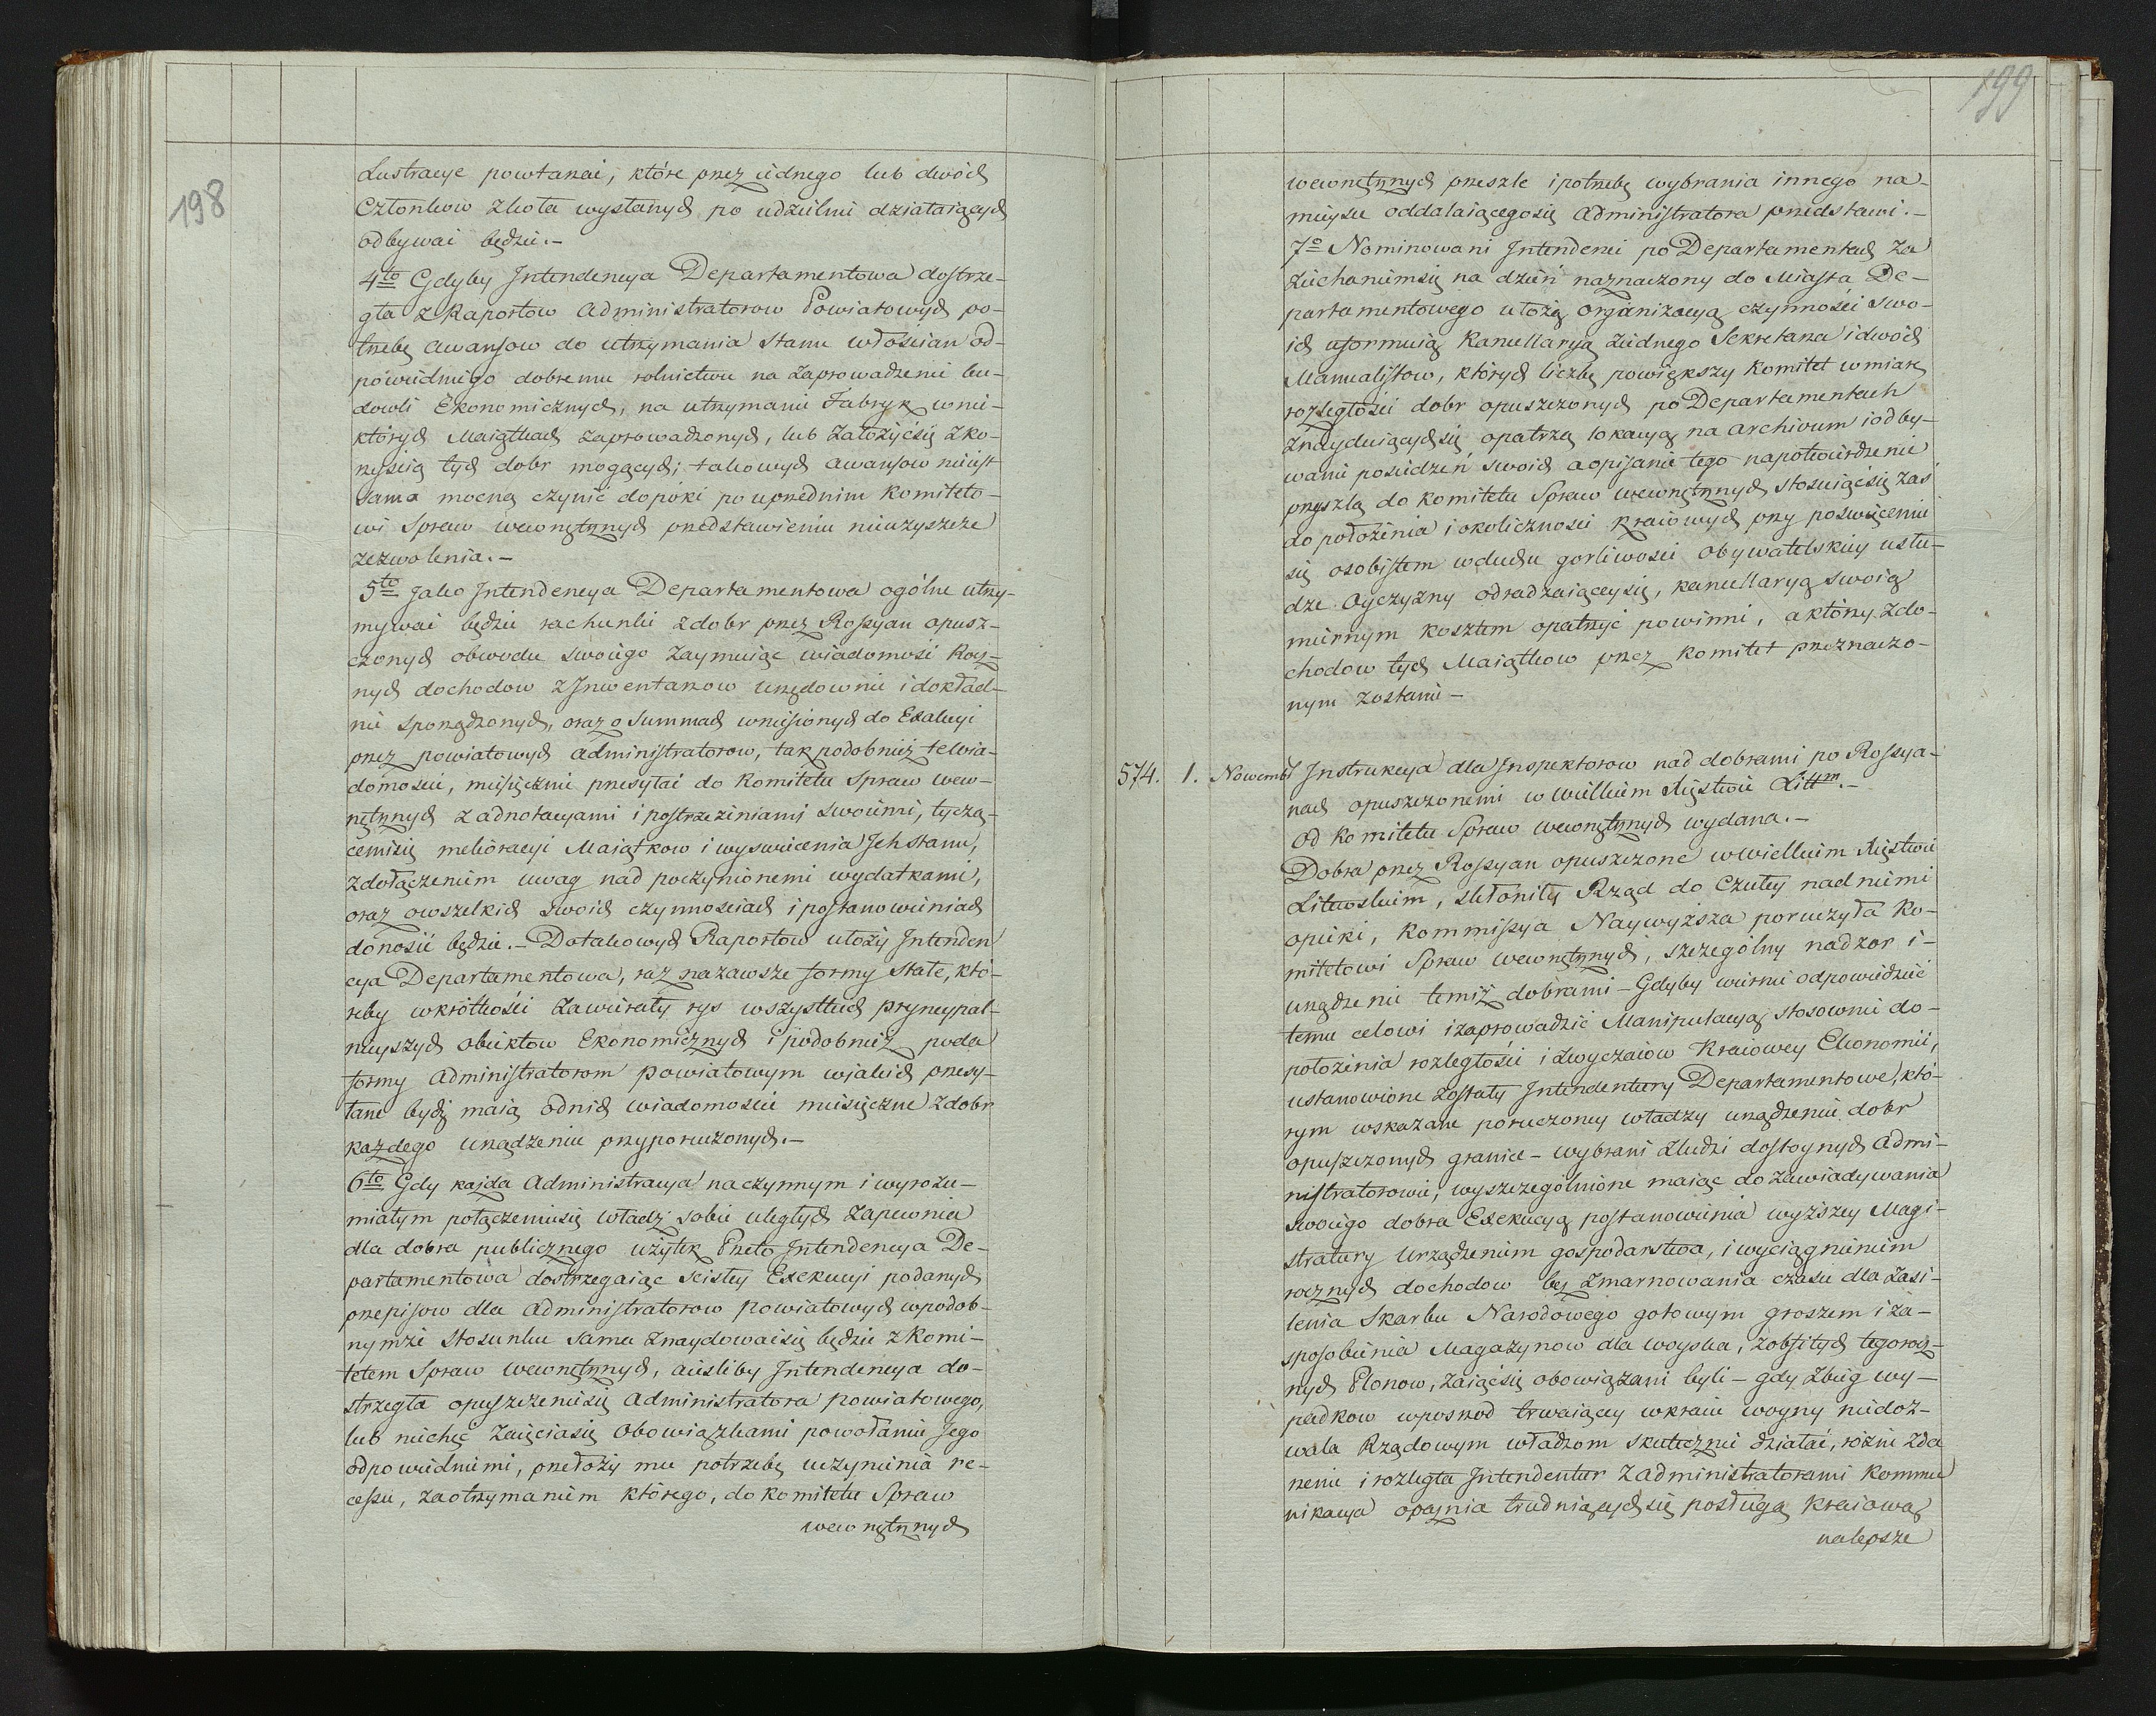 198
Lustracye powtarzać, które przez iednego lub dwóch
Członkow z kota wysłanych po udzielnie działaiących
odbywać będzie.–
4to Gdyby Intendencya Departamentowa dostrze-
gła z Raportow Administratorow Powiatowych po-
trzebę awansow do utrzymania Stanu włościan od-
powiedniego dobremu rolnictwu na zaprowadzenie bu-
dowli Ekonomicznych, na utrzymanie Fabryk w nie-
których Maiątkach zaprowadzonych, lub założyć się z ko-
rzyścią tych dobr mogących; takowych awansow nieiest
sama mocną czynić dopóki po uprzednim Komiteto-
wi Spraw wewnętrznych przedstawieniu nieuzyszcze
zezwolenia.–
5to Jako Intendencya Departamentowa ogólne utrzy-
mywać będzie rachunki z dobr przez Rossyan opusz-
czonych obwodu swoiego zaymuiąc wiadomość Rocz-
nych dochodow z Inwentarzow urzędownie i dokład-
nie sporządzonych, oraz o Summach wniesionych do Exakcyi
przez powiatowych Administratorow, tak podobnież te wia-
domości, miesięcznie przesyłać do Komitetu Spraw wew-
nętrznych z adnotacyami i postrzeżeniami swoiemi, tyczą-
cemi się melioracyi Maiątkow i wyświecenia Ich stanu,
z dołączeniem uwag nad poczynionemi wydatkami,
oraz o wszelkich swoich czynnościach i postanowieniach
donosić będzie.– Do takowych Raportow ułoży Intenden
cya Departamentowa, raz na zawsze formy stałe, któ-
reby w krótkości zawierały rys wszystkich pryncypal-
nieyszych obiektow Ekonomicznych i podobnież poda
formy Administratorom powiatowym w iakich przesy-
łane bydź maią od nich wiadomoście miesięczne z dobr
każdego urządzeniu przyporuczonych.–
6to Gdy każda Administracya na czynnym i wyrozu-
miałym połączeniu się władz sobie uległych zapewnia
dla dobra publicznego użytek Przeto Intendencya De-
partamentowa dostrzegaiąc scisłey Exekucyi podanych
przepisow dla Administratorow powiatowych w podob-
nymże stosunku sama znaydować się będzie z Komi-
tetem Spraw wewnętrznych, a iesliby Intendencya do-
strzegła opuszczenie się Administratora powiatowego,
lub niechęć zaięcia się obowiązkami powołaniu Jego
odpowiedniemi, przełoży mu potrzebę uczynienia re-
cessu, za otrzymaniem którego, do Komitetu Spraw
wewnętrznych
199
wewnętrznych przeszle i potrzebę wybrania innego na-
mieysce oddalaiącego się Administratora przedstawi.–
7o Nominowani Intendenci po Departamentach za
ziechaniem się na dzień naznaczony do Miasta De-
partamentowego ułożą organizacyą czynności swo-
ich uformuią Kancellaryą z iednego Sekretarza i dwóch
Manualistow, których liczbę powiększy Komitet w miarę
rozległości dobr opuszczonych po Departamentach
znayduiących się opatrzą lokacyą na archivum i odby-
wanie posiedzeń swoich a opisanie tego na potwierdzenie
przyszlą do Komitetu Spraw wewnętrznych stosuiąc się zaś
do położenia i okoliczności kraiowych przy poświęceniu
się osobistem w duchu gorliwości obywatelskiey usłu-
dze Oyczyzny odradzaiącey się, kancellaryą swoią
miernym kosztem opatrzyć powinni, a który z do-
chodow tych Maiątkow przez Komitet przeznaczo-
nym zostanie –
574. 1. Novembr Instrukcya dla Inspektorow nad dobrami po Rossya-
nach opuszczonemi w Wielkiem Xięstwie Littm.–
od Komitetu Spraw wewnętrznych wydana.–
Dobra przez Rossyan opuszczone w Wielkiem Xięstwie
Litewskiem, skłoniły Rząd do Czułey nad niemi
opieki, Kommissya Naywyższa poruczyła Ko-
mitetowi Spraw wewnętrznych, szczególny nadzor i-
urządzenie temiż dobrami – Gdyby wiernie odpowiedzieć
temu celowi i zaprowadzić Manipulacyą stosownie do-
położenia rozległości i zwyczaiow Kraiowey Ekonomii,
ustanowione zostały Intendentury Departamentowe, któ-
rym wskazane poruczoney władzy urządzeniu dobr
opuszczonych granice – wybrani z ludzi dostoynych Admi-
nistratorowie, wyszczególnione maiąc do zawiadywania
swoiego dobra Exekucyą postanowienia wyższey Magi-
stratury Urządzeniem gospodarstwa, i wyciągnieniem
rocznych dochodow bez zmarnowania czasu dla zasi-
lenia Skarbu Narodowego gotowym groszem i za-
sposobienia Magazynow dla woyska, z obfitych tegorocz-
nych Plonow, zaiąć się obowiązani byli – gdy zbieg wy-
padkow wpośrzod trwaiącey w kraiu woyny niedoz-
wala Rządowym władzom skutecznie działać, różne zda
rzenie i rozległa Intendentur z Administratorami Kommu
nikacya opaźnia trudniących się posługą kraiową
nalepsze